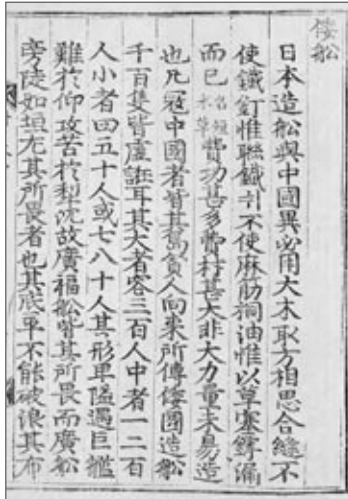 倭舩
日本造舩與中國異必用大木取方相思合縫不
使鐵釘惟聯鐵引不使麻筋桐油惟以草塞罅漏
而已名短水草費功甚多費材甚大非大力量未易造
也凡冦中國者皆其島貧人向來所傳倭國造舩
千百隻皆虛誑耳其大者容三百人中者一二百
人小者四五十人或七八十人其形卑隘遇巨艦
難於仰攻苦於犁沉故廣福舩皆其所畏而廣舩
旁陡如垣尤其所畏者也其底平不能破浪其布